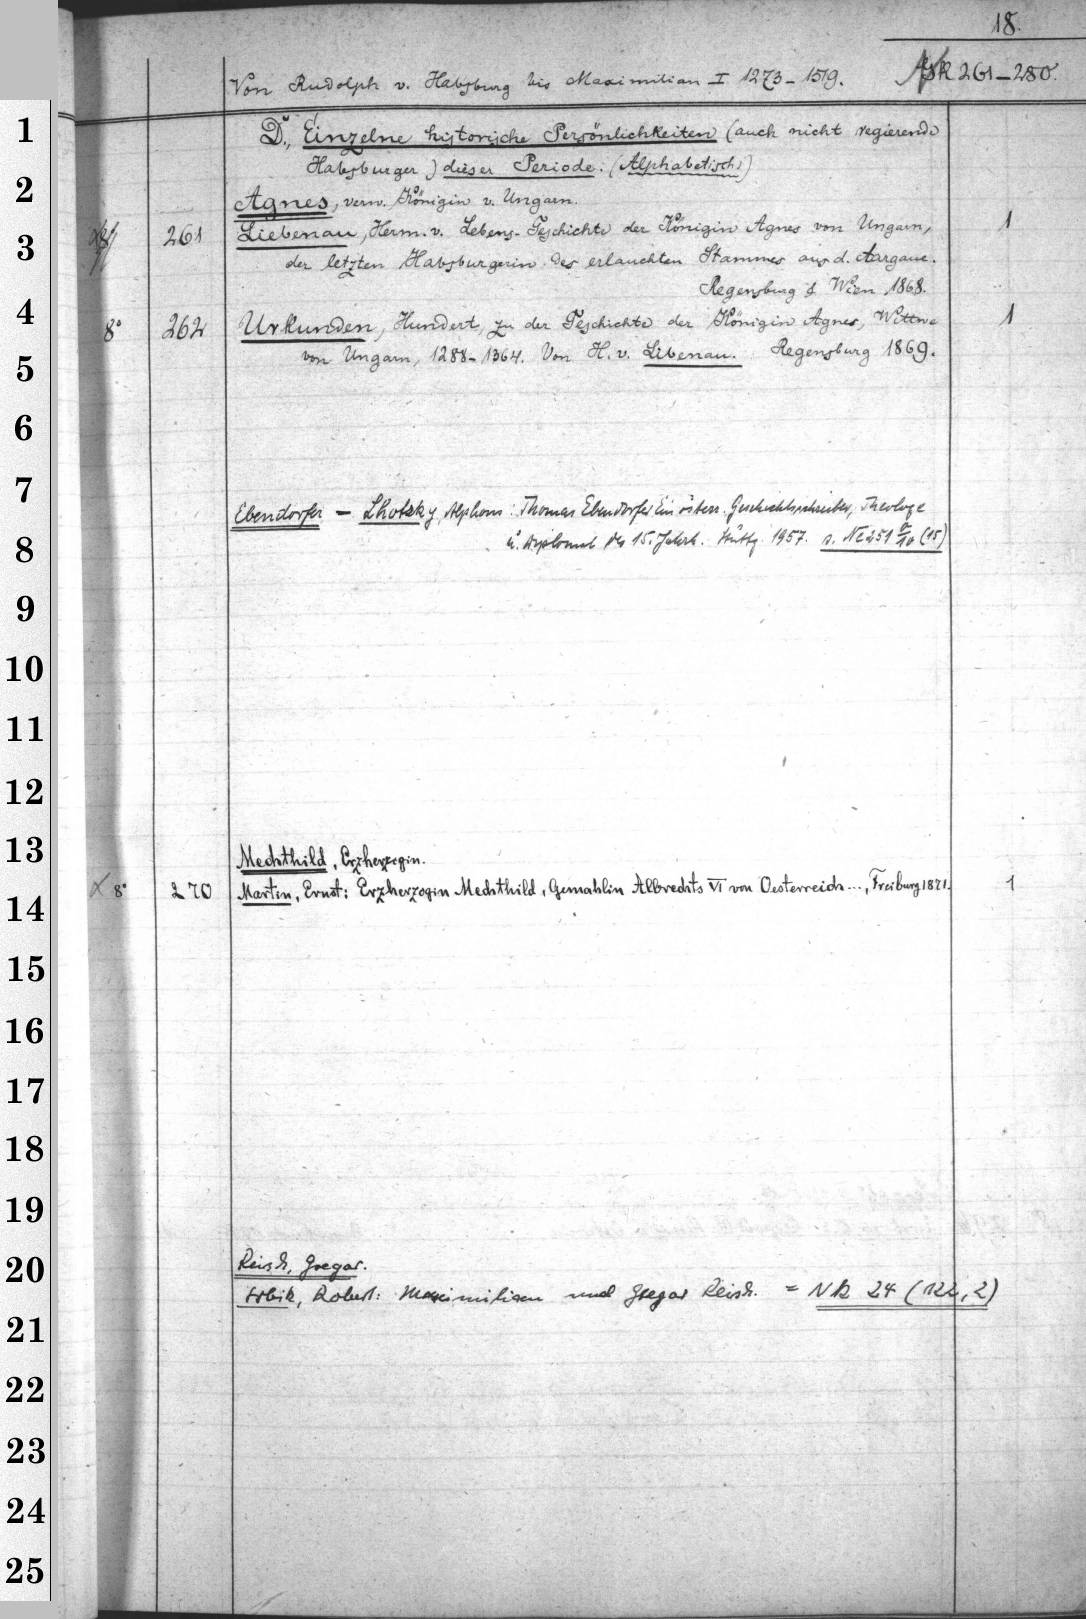 18.
Von Rudolph v. Habsburg bis Maximilian I 1273–1519. NK 261–280.
1
D., Einzelne historische Persönlichkeiten (auch nicht regierende
Habsburger) dieser Periode: (Alphabetisch)
2
Agnes, verw. Königin v. Ungarn.
3
8° 261 Liebenau, Herm. v. Lebens-Geschichte der Königin Agnes von Ungarn, 1
der letzten Habsburgerin des erlauchten Stammes aus d. Aargaue.
Regensburg & Wien, 1868.
4
8° 262 Urkunden, Hundert, zu der Geschichte der Königin Agnes, Wittwe 1
von Ungarn, 1288–1364. Von H. v. Libenau. Regensburg 1869.
5
6
7
Ebendorfer – Lhotsky, Alphons: Thomas Ebendorfer Ein österr. Geschichtsschreiber, Theologe
8
u. Diplomat des 15. Jahrh. Stuttg. 1957. s. NE 251 a/10 (15)
9
10
11
12
13
Mechthild, Erzherzogin.
14
X 8° 270 Martin, Ernst: Erzherzogin Mechthild, Gemahlin Albrechts VI von Oesterreich..., Freiburg 1871. 1
15
16
17
18
19
20
Reisch, Gregor.
Srbik, Robert: Maximilian und Gregor Reisch. = NK 24 (122, 2)
21
22
23
24
25